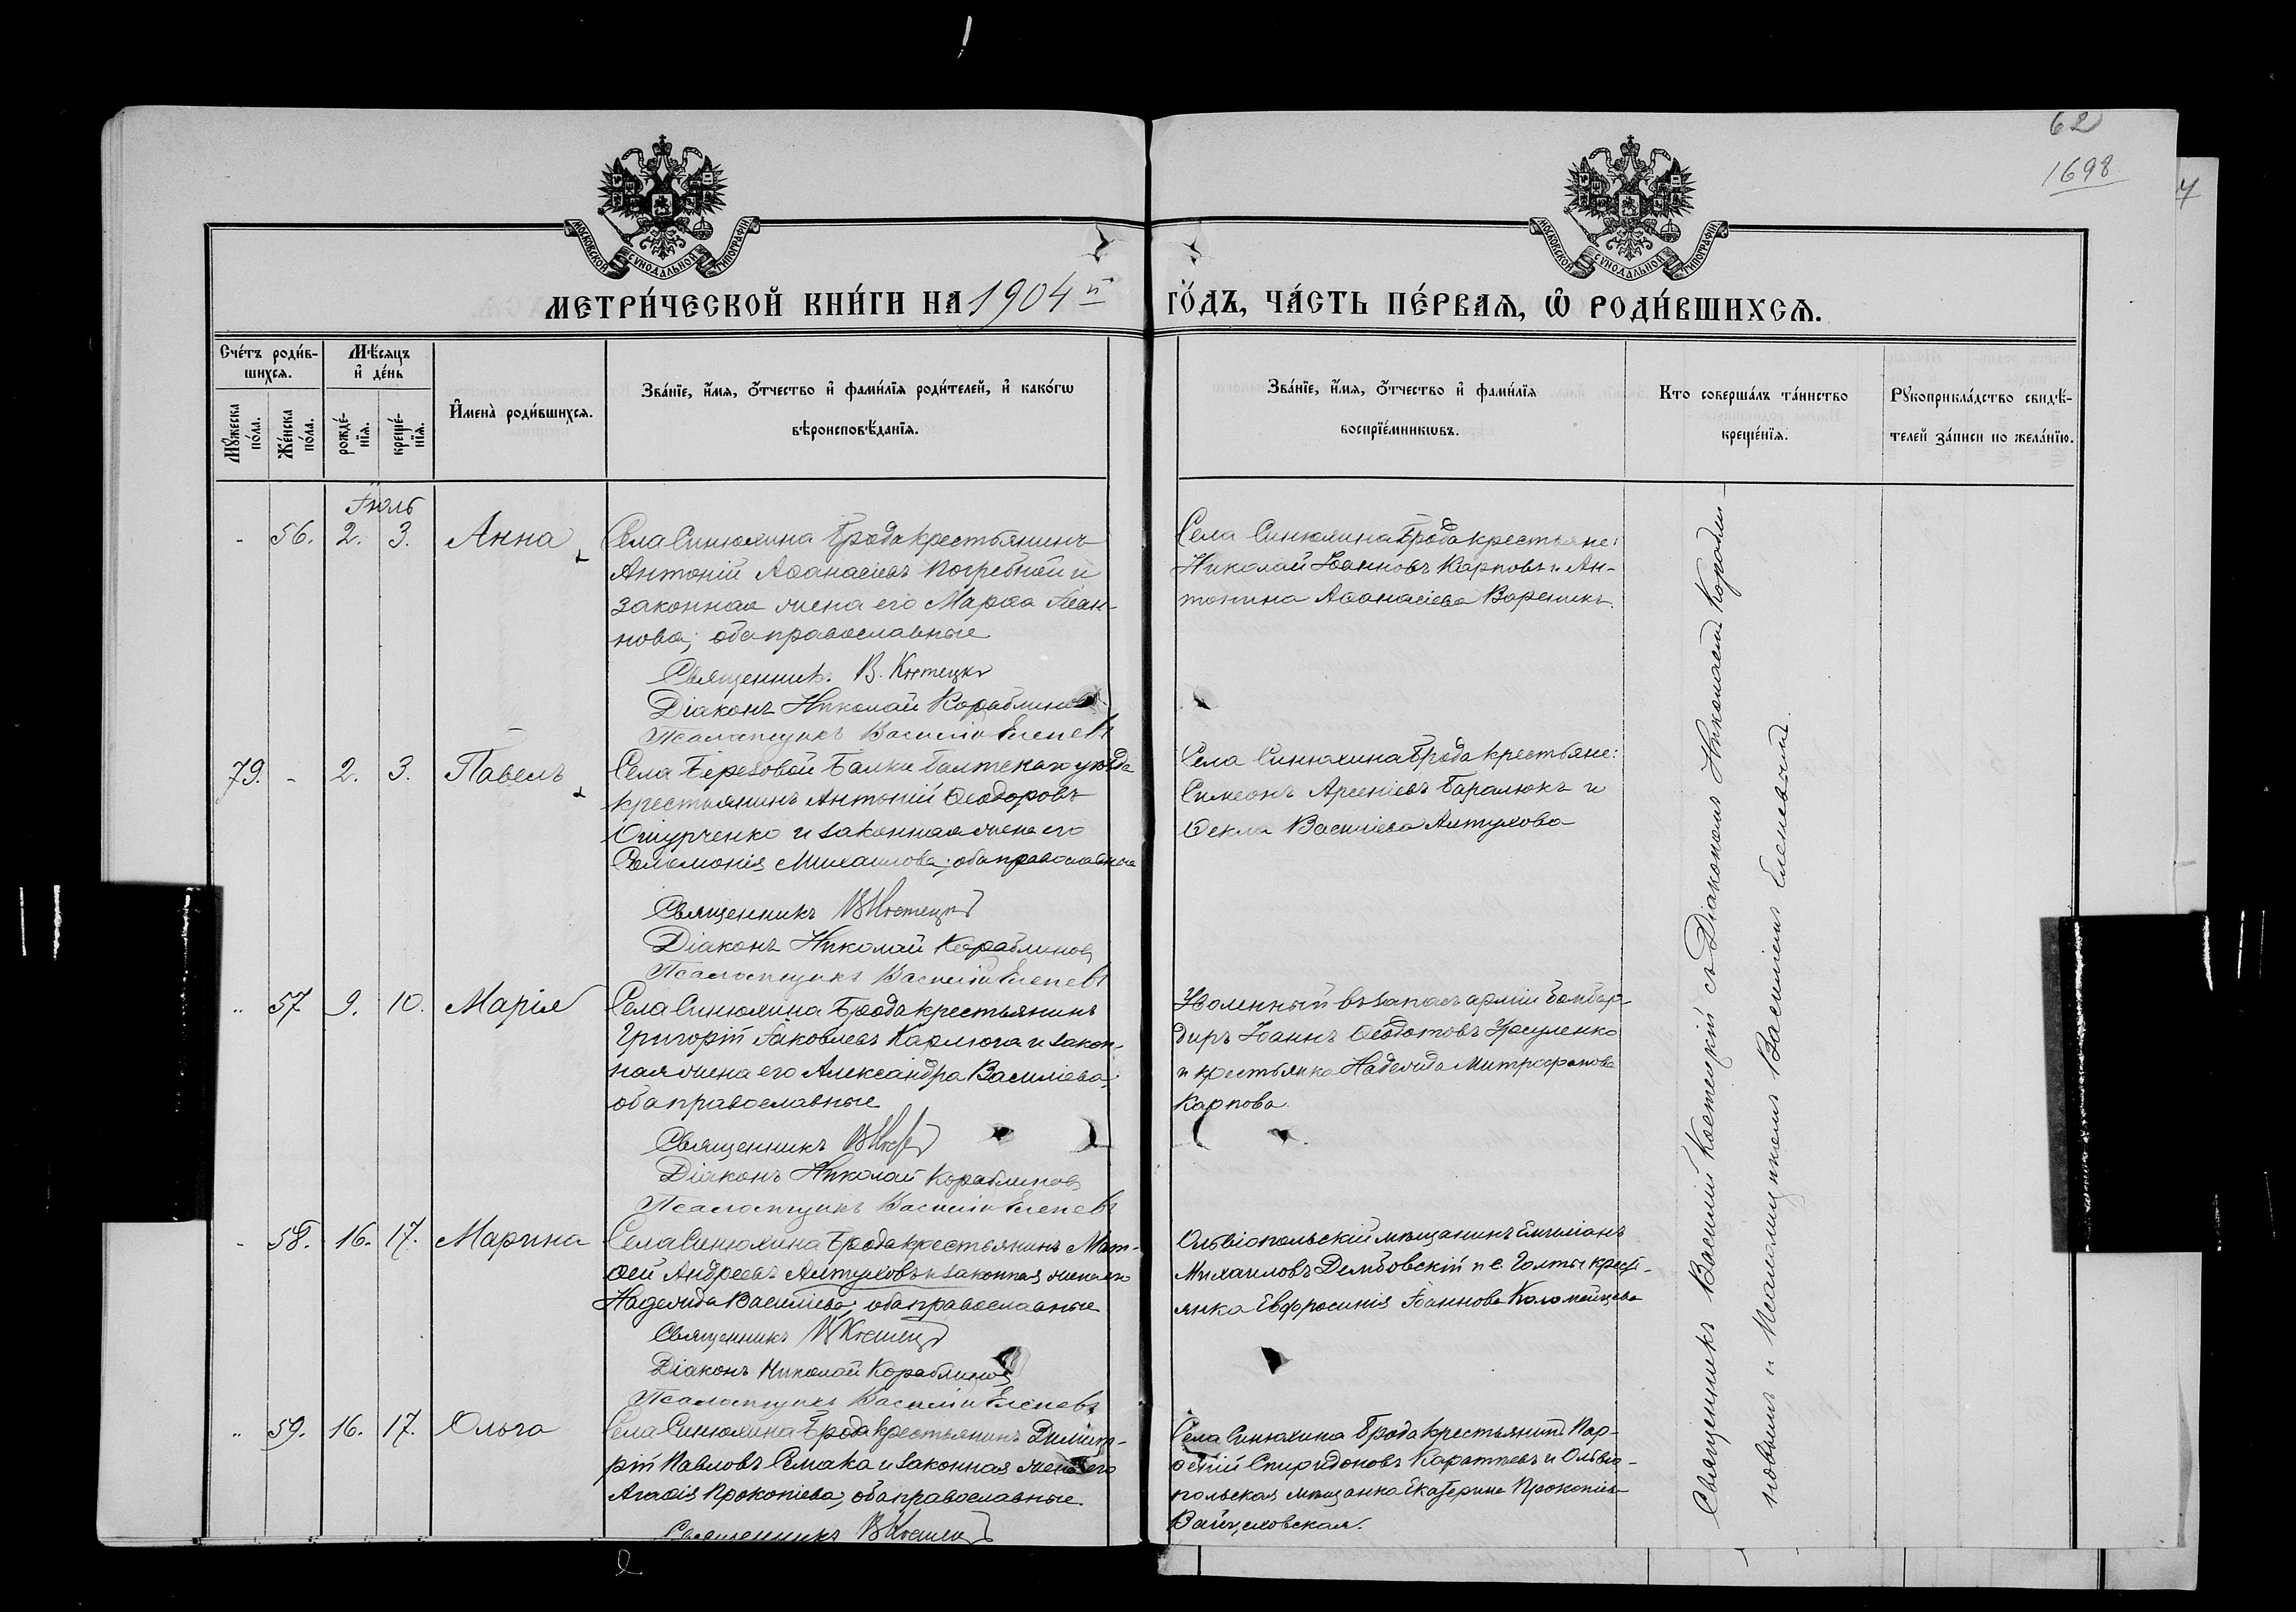 62
1698
МОСКОВСКОЙ СУНОДАЛЬНОЙ ТИПОГРАФІИ
МОСКОВСКОЙ СУНОДАЛЬНОЙ ТИПОГРАФІИ
МЕТРИ́ЧЕСКОЙ КНИ́ГИ НА 1904й ГО́ДЪ, ЧА́СТЬ ПЕ́РВАЯ, Ѡ҆ РОДИ́ВШИХСЯ.
Сче́тъ роди́в-
шихся.
Мѣ́сяцъ
и҆ де́нь
Мꙋ́жеска по́ла.
Же́нска по́ла.
рожде́-нїя.
креще́-нїя.
И҆мена̀ роди́вшихся.
Зва́нїе, и҆́мя, ѻ҆́тчество и҆ фами́лїя роди́телей, и҆ како́гѡ
вѣроисповѣ́данїя.
Зва́нїе, и҆́мя, ѻ҆́тчество и҆ фами́лїя
воспрїе́мникѡвъ.
Кто соверша́лъ та́инство
креще́нїя.
Рꙋкоприкла́дство свидѣ́-
телей за́писи по жела́нїю.
Іюль
- 56. 2. 3. Анна
Села Синюхина Брода крестьянинъ
Антоній Аѳанасіевъ Погребной и
законная жена его Марѳа Іоан-
нова; оба православные
Священникъ В. Костецкі
Діаконъ Николай Кораблиновъ
Псаломщикъ Василій Еленевъ
Села Синюхина Брода крестьяне:
Николай Іоанновъ Карповъ и Ан-
тонина Аѳанасіева Вареникъ.
79. - 2. 3. Павелъ
Села Березовой Балки Балтскаго уѣзда
крестьянинъ Антоній Ѳеодоровъ
и законная жена его
Соломонія Михаилова; оба православные
Священникъ В Костецкі
Діаконъ Николай Кораблиновъ
Псаломщикъ Василій Еленевъ
Села Синюхина Брода крестьяне:
Симеонъ Арсеніевъ Баралюкъ и
Ѳекла Василіева Алтухова
" 57 9. 10. Марія
Села Синюхина Брода крестьянинъ
Григорій Іаковлевъ Карлюга и закон-
ная жена его Александра Василіева;
оба православные
Священникъ В Кост
Діаконъ Николай Кораблиновъ
Псаломщикъ Василій Еленевъ
Уволенный въ запасъ арміи бомбар-
диръ Іоаннъ Ѳеодотовъ
и крестьянка Надежда Митрофанова
Карпова
- 58. 16. 17. Марина
Села Синюхина Брода крестьянинъ Мат-
ѳей Андреевъ Алтуховъ и законная жена его
Надежда Василіева; оба православные
Священникъ В Костец
Діаконъ Николай Кораблиновъ
Псаломщикъ Василій Еленевъ
Ольвіопольскій мѣщанинъ Емиліанъ
Михаиловъ Дембовскій и с. Голты кресть-
янка Евфросинія Іоаннова Коломойцева
" 59. 16. 17. Ольга
Села Синюхина Брода крестьянинъ Димит-
рій Павловъ Семака и законная жена его
Агаѳія Прокопіева; оба православные.
Священникъ В Костец
Села Синюхина Брода крестьянинъ Пар-
ѳеній Спиридоновъ и Ольвіо-
польская мѣщанка Екатерина Прокопіева
Войцеховская.
Священникъ Василій Костецкій съ Діакономъ Николаемъ Корабли-
новымъ и Псаломщикомъ Василіемъ Еленевымъ.